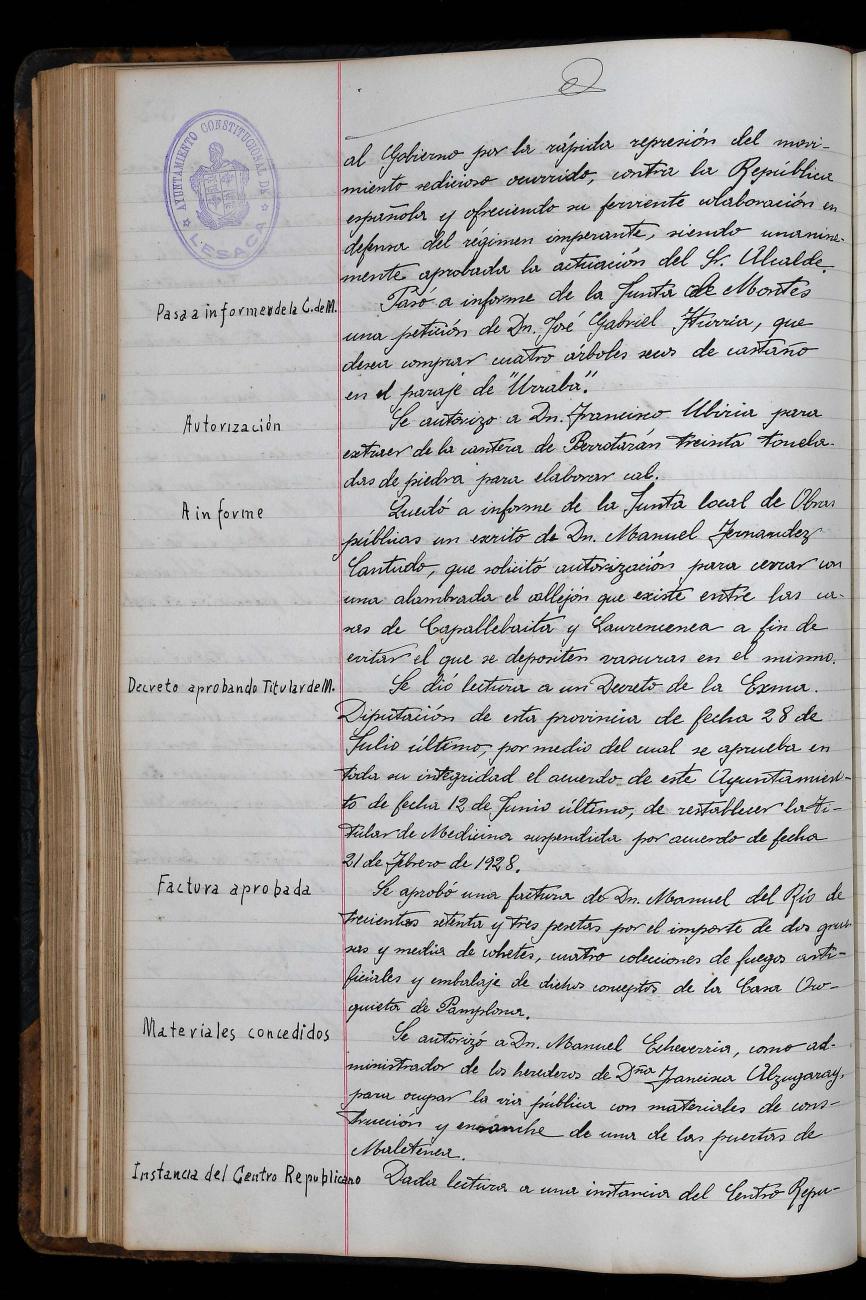 AYUNTAMIENTO CONSTITUCIONAL DE
LESACA
al Gobierno por la rápida represión del movi-
miento sedicioso ocurrido, contra la República
española y ofreciendo su ferviente colaboración en
defensa del régimen imperante, siendo unanime-
mente aprobada la actuación del Sr. Alcalde.
Pasa a informe de la C. de M.
Pasó a informe de la Junta de Montes
una petición de Dn. José Gabriel Iturria, que
desea comprar cuatro árboles secos de castaño
en el paraje de "Urraba".
Autorización
Se autorizo a Dn. Francisco Ubiria para
extraer de la cantera de Berrotarán treinta tonela-
das de piedra para elaborar cal.
A informe
Quedó a informe de la Junta local de Obras
públicas un escrito de Dn. Manuel Fernandez
Cantudo, que solicitó autorización para cerrar con
una alambrada el callejón que existe entre las ca-
sas de Capallebaita y Laurencenea a fin de
evitar el que se depositen vasuras en el mismo.
Decreto aprobando Titular de M.
Se dió lectura a un Decreto de la Exma.
Diputación de esta provincia de fecha 28 de
Julio último, por medio del cual se aprueba en
toda su integridad el acuerdo de este Ayuntamien-
to de fecha 12 de Junio último, de restablecer la Ti-
tular de Medicina suspendida por acuerdo de fecha
21 de Febrero de 1928.
Factura aprobada
Se aprobó una factura de Dn. Manuel del Río de
trecientas setenta y tres pesetas por el importe de dos grue-
sas y media de cohetes, cuatro colecciones de fuegos arti-
ficiales y embalaje de dichos conceptos de la Casa Oro-
quieta de Pamplona.
Materiales concedidos
Se autorizó a Dn. Manuel Echeverria, como ad-
ministrador de los herederos de Dña Francisca Alzugaray,
para ocupar la via pública con materiales de cons-
trucción y ensanche de una de las puertas de
Maletenea.
Instancia del Centro Republicano
Dada lectura a una instancia del Centro Repu-